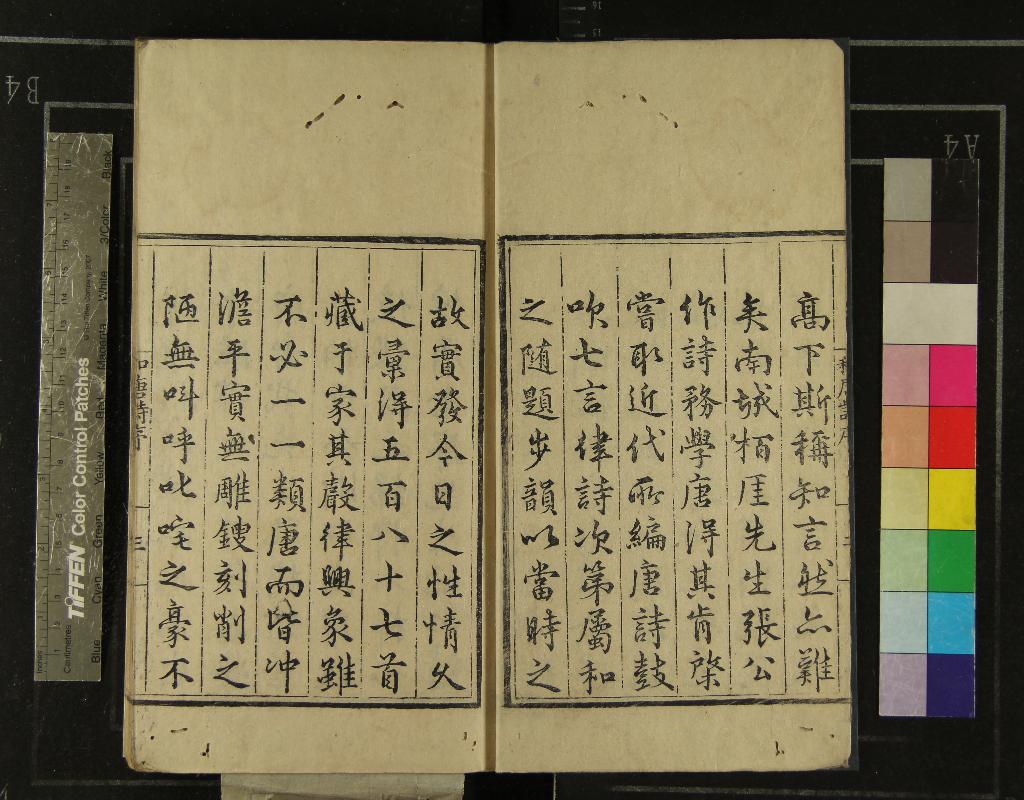 高下斯稱知言然亦難
矣南城栢厓先生張公
作詩務學唐得其肯綮
嘗取近代所編唐詩鼓
吹七言律詩次第屬和
之隨題步韻以當時之
故實發今日之性情久
之彙得五百八十七首
藏于家其聲律興象雖
不必一一類唐而皆冲
澹平實無雕鎪刻削之
陋無叫呼叱咤之豪不
和唐詩序
三
TIFFEN Color Control Patches
Blue Cyan Green Yellow Red Magenta White 3/Color Black
Inches
Centimetres
B4
A4